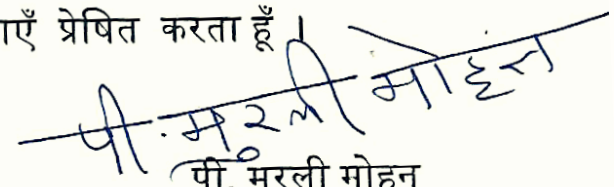 एँ प्रेषित करता हूँ।
पी. मुरली मोहन
पी. मुरली मोहन